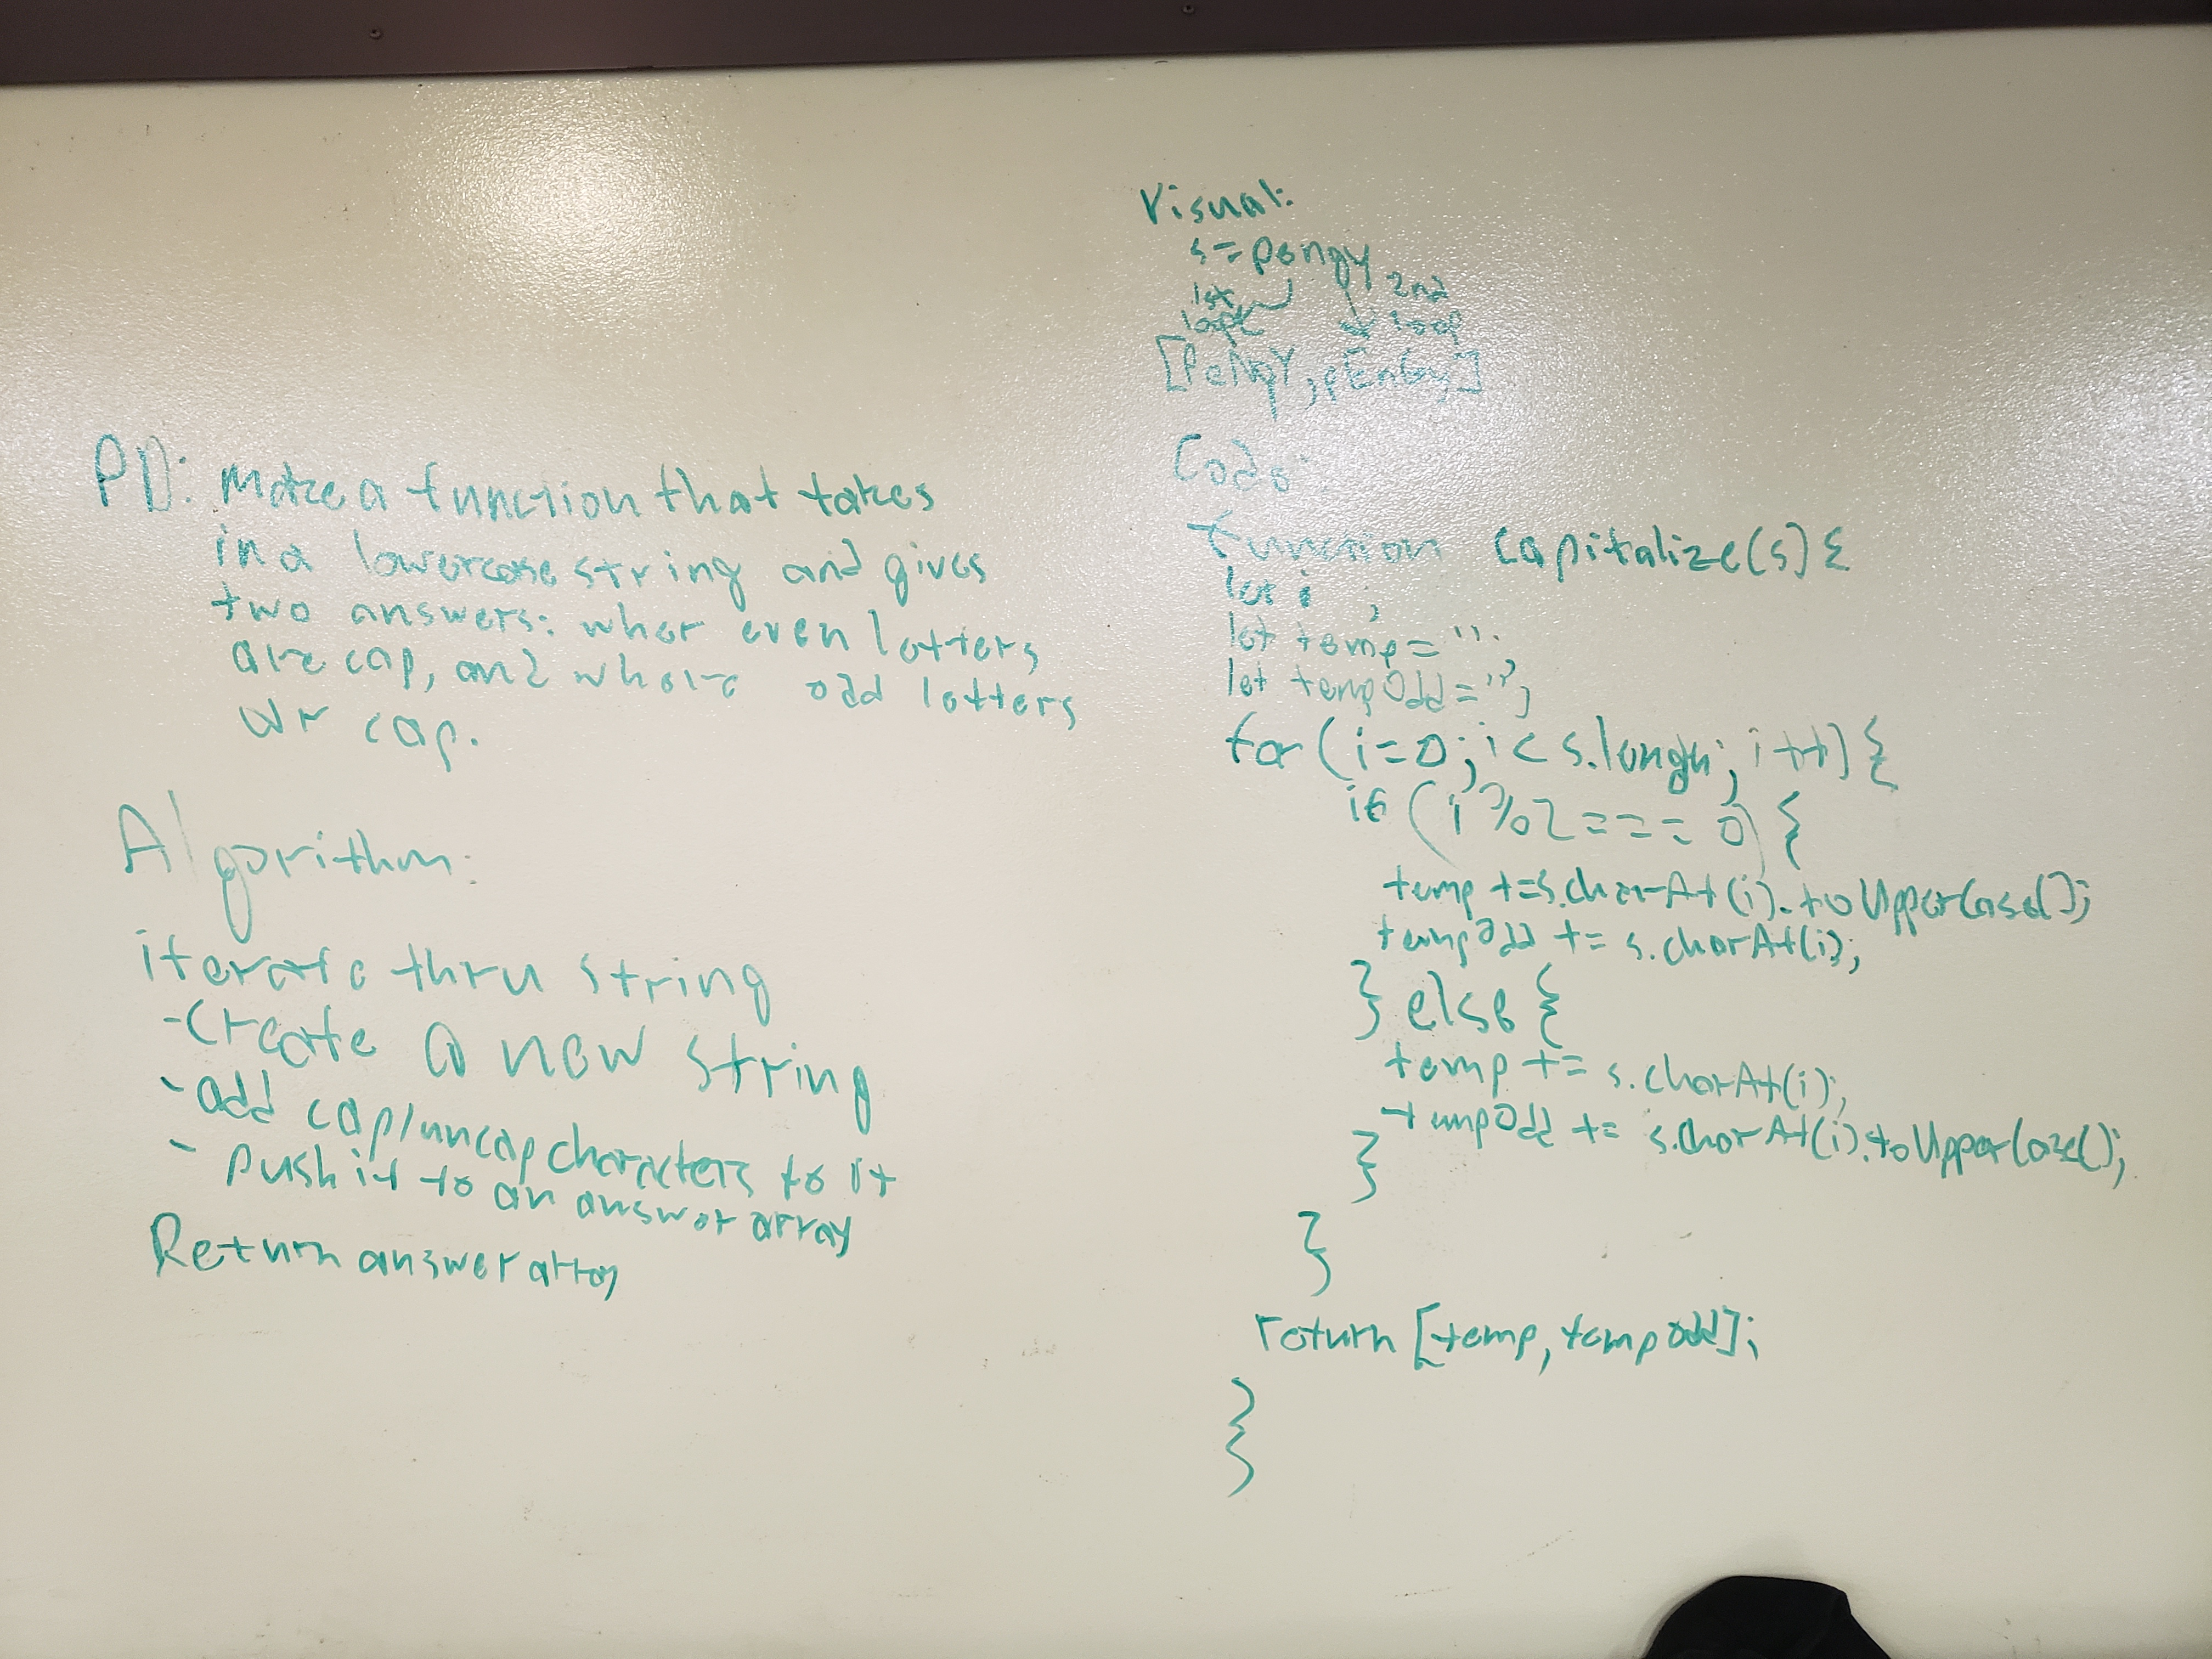 PD: Make a function that takes
in a lowercase string and gives
two answers: wher even letters
are cap, and where odd letters
ar cap.
Algorithm:
iterate thru string
- Create a new string
- add cap/uncap characters to it
- push it to an answer array
Return answer array
Visual:
s = pengy
1st 2nd
loop
[PeNgY, pEnGy]
Code:
function capitalize(s){
let i ;
let temp = "";
let tempOdd = "";
for (i=0; i < s.length; i++) {
if (i % 2 === 0) {
temp += s.charAt(i).toUpperCase();
tempOdd += s.charAt(i);
} else {
temp += s.charAt(i);
tempOdd += s.charAt(i).toUpperCase();
}
}
return [temp, tempOdd];
}